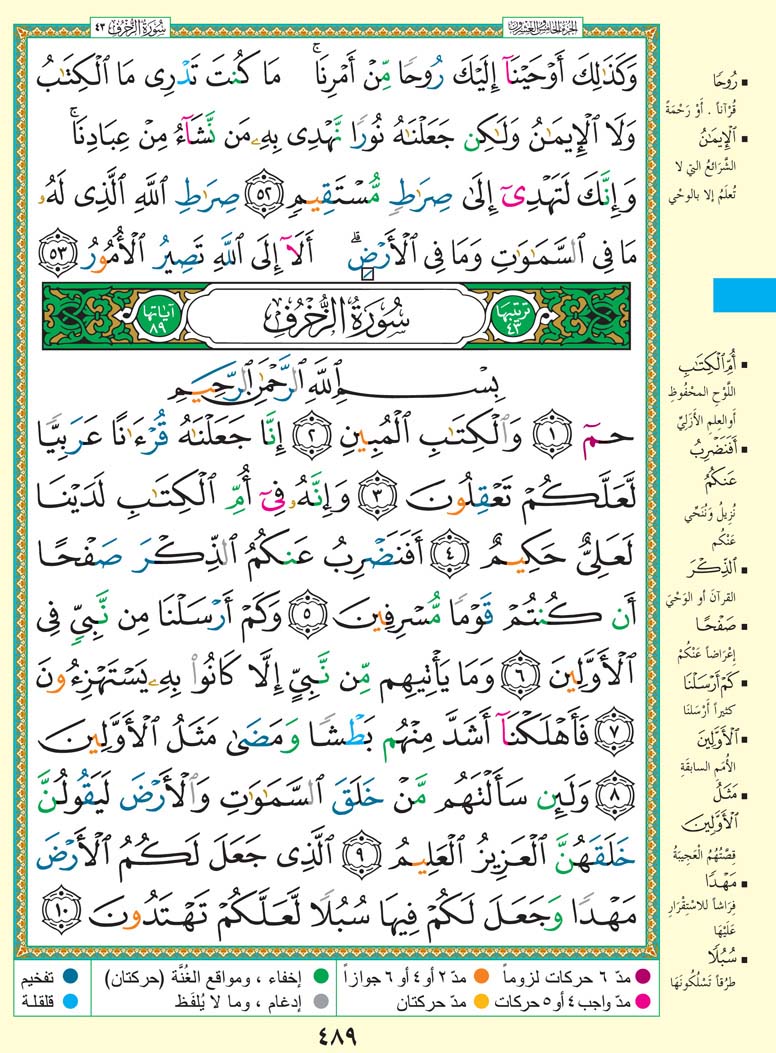 الجزء الخامس والعشرون
سورة الزخرف ٤٣
وَكَذَٰلِكَ أَوْحَيْنَآ إِلَيْكَ رُوحًا مِّنْ أَمْرِنَا ۚ مَا كُنتَ تَدْرِى مَا ٱلْكِتَٰبُ
وَلَا ٱلْإِيمَٰنُ وَلَٰكِن جَعَلْنَٰهُ نُورًا نَّهْدِى بِهِۦ مَن نَّشَآءُ مِنْ عِبَادِنَا ۚ
وَإِنَّكَ لَتَهْدِىٓ إِلَىٰ صِرَٰطٍ مُّسْتَقِيمٍ ٥٢ صِرَٰطِ ٱللَّهِ ٱلَّذِى لَهُۥ
مَا فِى ٱلسَّمَٰوَٰتِ وَمَا فِى ٱلْأَرْضِ ۗ أَلَآ إِلَى ٱللَّهِ تَصِيرُ ٱلْأُمُورُ ٥٣
ترتيبها ٤٣ سُورَةُ الزُّخْرُفِ آياتها ٨٩
بِسْمِ ٱللَّهِ ٱلرَّحْمَٰنِ ٱلرَّحِيمِ
حمٓ ١ وَٱلْكِتَٰبِ ٱلْمُبِينِ ٢ إِنَّا جَعَلْنَٰهُ قُرْءَٰنًا عَرَبِيًّا
لَّعَلَّكُمْ تَعْقِلُونَ ٣ وَإِنَّهُۥ فِىٓ أُمِّ ٱلْكِتَٰبِ لَدَيْنَا
لَعَلِىٌّ حَكِيمٌ ٤ أَفَنَضْرِبُ عَنكُمُ ٱلذِّكْرَ صَفْحًا
أَن كُنتُمْ قَوْمًا مُّسْرِفِينَ ٥ وَكَمْ أَرْسَلْنَا مِن نَّبِىٍّ فِى
ٱلْأَوَّلِينَ ٦ وَمَا يَأْتِيهِم مِّن نَّبِىٍّ إِلَّا كَانُوا۟ بِهِۦ يَسْتَهْزِءُونَ
٧ فَأَهْلَكْنَآ أَشَدَّ مِنْهُم بَطْشًا وَمَضَىٰ مَثَلُ ٱلْأَوَّلِينَ
٨ وَلَئِن سَأَلْتَهُم مَّنْ خَلَقَ ٱلسَّمَٰوَٰتِ وَٱلْأَرْضَ لَيَقُولُنَّ
خَلَقَهُنَّ ٱلْعَزِيزُ ٱلْعَلِيمُ ٩ ٱلَّذِى جَعَلَ لَكُمُ ٱلْأَرْضَ
مَهْدًا وَجَعَلَ لَكُمْ فِيهَا سُبُلًا لَّعَلَّكُمْ تَهْتَدُونَ ١٠
▪ رُوحًا
قُرْآناً . أَوْ رَحْمَةً
▪ ٱلْإِيمَٰنُ
الشَّرَائِعُ التي لا
تُعلَمُ إلا بالوحْي
▪ أُمِّ ٱلْكِتَٰبِ
اللَّوْحِ المحْفُوظِ
أو العِلمِ الأَزَلِيِّ
▪ أَفَنَضْرِبُ
عَنكُمُ
نُزِيلُ وَنُنَحِّي
عَنْكُم
▪ ٱلذِّكْرَ
القرآنَ أو الوَحْيَ
▪ صَفْحًا
إعْرَاضاً عَنْكُم
▪ كَمْ أَرْسَلْنَا
كثيراً أَرْسَلنَا
▪ ٱلْأَوَّلِينَ
الأُمَمِ السابقَةِ
▪ مَثَلُ
ٱلْأَوَّلِينَ
قِصَّتُهُمُ العَجِيبَةُ
▪ مَهْدًا
فِرَاشاً للاسْتِقْرَارِ
عَلَيْهَا
▪ سُبُلًا
طُرُقاً تَسْلُكُونَهَا
مدّ ٦ حركات لزوماً مدّ ٢ أو ٤ أو ٦ جوازاً إخفاء ، ومواقع الغُنَّة (حركتان) تفخيم
مدّ واجب ٤ أو ٥ حركات مدّ حركتان إدغام ، وما لا يُلفَظ قلقلة
٤٨٩